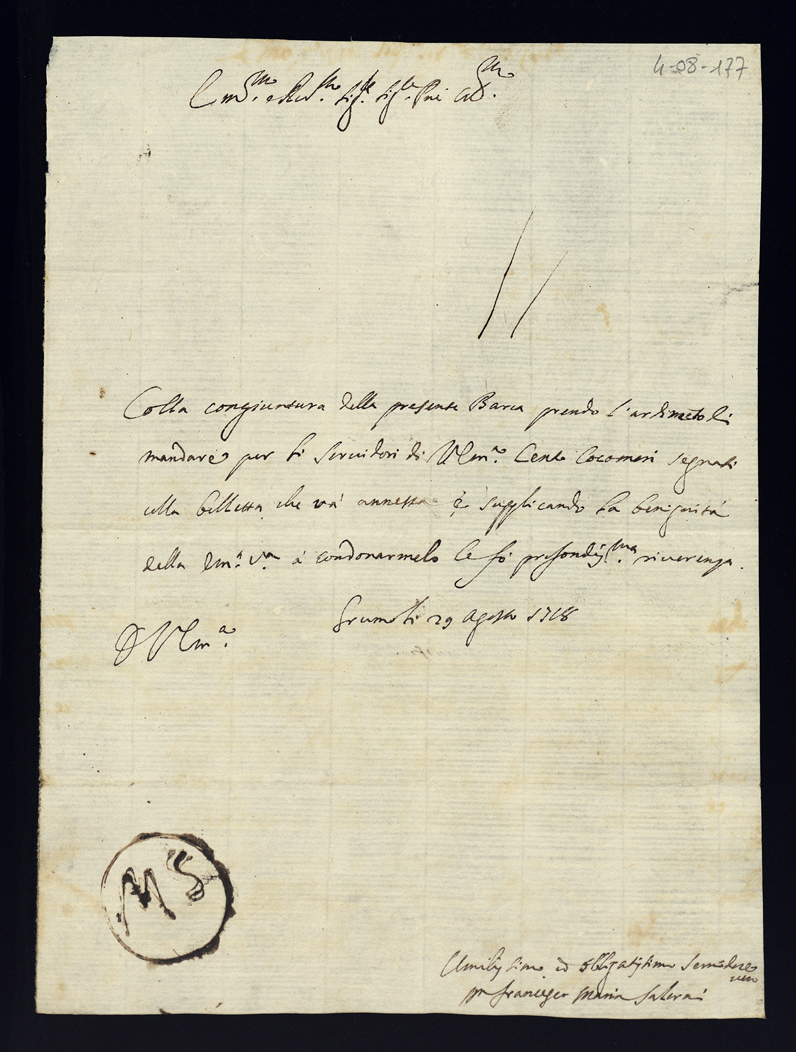 4-08-177
Em.mo e Rev.mo Sig.re Sig.re Pne
Colla congiuntura della presente Barca prendo l'ardimeto di
mandare per li Servidori di V Em.a Cento Cocomeri segnati
colla bolletta che và annessa è supplicando la benignità
della Em.a V.a à condonarmelo le fò profondiss.ma riverenza.
Grumoli 29 Agosto 1718
D V Em.a
MS
Umilissimo ed obligatissimo Servidore
Francesco Maria Salerni